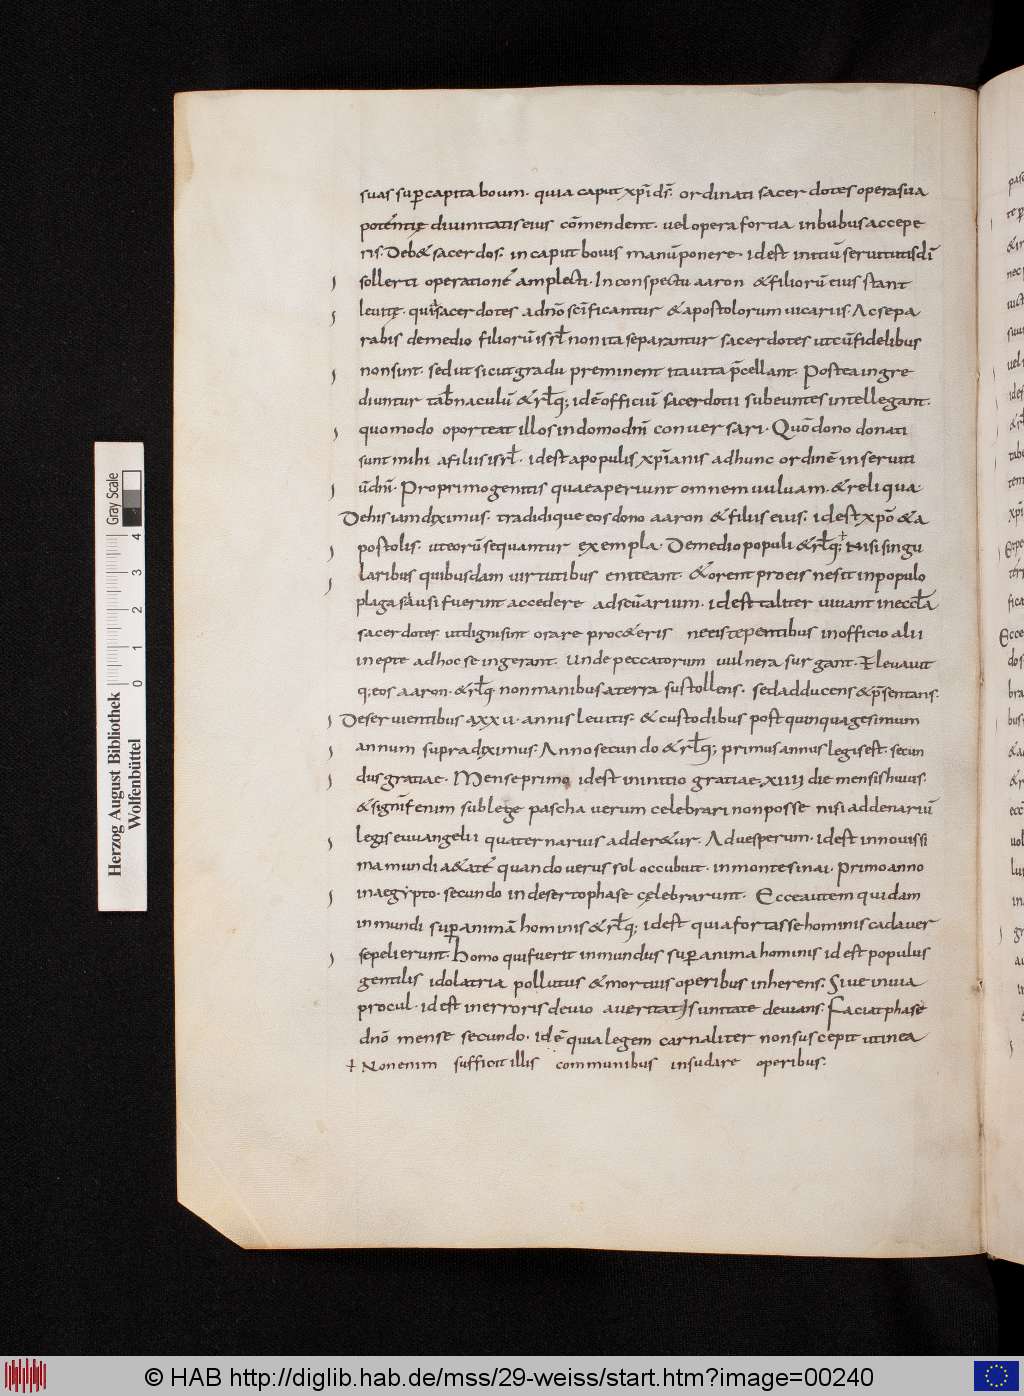 suas sup capita boum. quia caput xp̄i ds̄. ordinati sacerdotes opera sua
potentię divinitatis eius cōmendent. vel opera fortia in bubus accepe
ris. Deb& sacerdos. in caput bovis manū ponere. id est initiū servitutis dī
sollerti operationē amplecti. In conspectu aaron & filiorū eius stant
levitę. quia sacerdotes a dnō sc̄ificantur & apostolorum vicariis. Ac sepa
rabis de medio filiorū isrł non ita separantur sacerdotes ut cū fidelibus
non sint. sed ut sicut gradu preminent ita vita p̄cellant. Postea ingre
diuntur tab̄naculū & rłq; idē officiū sacerdotii subeuntes intellegant.
quomodo oporteat illos in domo dnī conversari. Quō dono donati
sunt mihi a filiis isrł. id est a populis xp̄ianis ad hunc ordinē in serviti
ū dnī. Pro primogenitis quae aperiunt omnem vulvam. & reliqua
De his iam diximus. tradidique eos dono aaron & filiis eius. id est xpō & a
postolis. ut eorū sequantur exempla. De medio populi & rłq; Nisi singu
laribus quibusdam virtutibus eniteant. & orent pro eis ne sit in populo
plaga si ausi fuerint accedere ad sc̄uarium. id est taliter vivant in eccła
sacerdotes ut digni sint orare pro c&eris ne eis tepentibus in officio alii
inepte ad hoc se ingerant. Unde peccatorum vulnera surgant. Elevavit
q; eos aaron. & rłq non manibus a terra sustollens. sed adducens & p̄sentans.
De servientibus a xxv. annis levitis. & custodibus post quinquagesimum
annum supra diximus. Anno secundo & rłq; primus annus legis est. secun
dus gratiae. Mense primo id est in initio gratiae. xiiii die mensis huius.
& significat enim sub lege pascha verum celebrari non posse nisi ad denariū
legis euuangelii quaternarius adder&ur. Ad vesperum. id est in novissi
ma mundi a&atē quando verus sol occubuit. in monte sinai. primo anno
in aegypto. secundo in deserto phase cęlebrarunt. Ecce autem quidam
inmundi sup animā hominis & rłq; id est quia fortasse hominis cadaver
sepelierunt. Homo qui fuerit inmundus sup anima hominis id est populus
gentilis idolatria pollutus & mortuis operibus inherens. Sive in via
procul. id est in erroris devio a veritatis unitate devians. Faciat phase
dnō mense secundo. id ē quia legem carnaliter non suscepit ut in ea
+ Non enim sufficit illis communibus insudare operibus.
Gray Scale
4
3
2
1
0
Herzog August Bibliothek
Wolfenbüttel
© HAB http://diglib.hab.de/mss/29-weiss/start.htm?image=00240